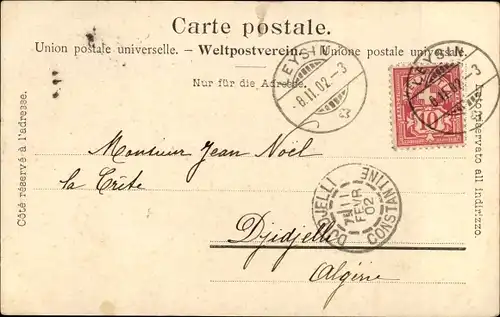 Carte postale.
Union postale universelle. — Weltpostverein. — Unione postale universale.
Nur für die Adresse.
LEYSIN
-8.II.02-3
LEYSIN
-8.II.02-3
10
Côté réservé à l'adresse.
Lato riservato all indirizzo.
Monsieur Jean Noël
la Crête
Djidjelli
Algérie
DJIDJELLI
CONSTANTINE
11
FEVR
02